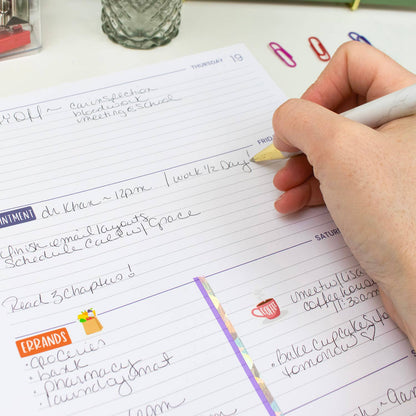 THURSDAY 19
WFH ~ car inspection
bloodwork
meeting @ school
FRIDAY
INTMENT dr Khan ~ 12pm / work 1/2 Day!
finish email layouts
Schedule Call w/ Grace
Read 3 chapters!
SATUR
ERRANDS
· groceries
· bank
· pharmacy
· laundrymat
COFFEE meet w/ Lisa
coffeehouse
11:30am
· bake cupcakes
tomorrow